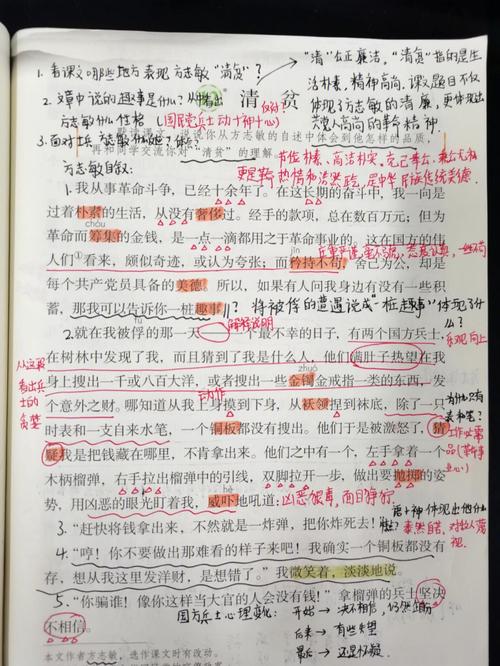 1. 看课文哪些地方表现方志敏"清贫"?
"清"公正廉洁,"清贫"指的是生
活朴素,精神高尚。课文题目不仅
体现了方志敏的清廉,更体现出
共产党人高尚的革命精神
2. 文章中说的趣事是什么?从中看出
方志敏什么性格
(国民党兵士动作神态)
清贫
默读课文,说说你从方志敏的自述中体会到他怎样的品质,
再和同学交流你对"清贫"的理解。
方志敏自叙:
1.我从事革命斗争,已经十余年了。在这长期的奋斗中,我一向是
过着朴素的生活,从没有奢侈过。经手的款项,总在数百万元;但为
chóu
革命而筹集的金钱,是一点一滴都用之于革命事业的。这在国方的伟
jīn
人们①看来,颇似奇迹,或认为夸张;而矜持不苟,舍己为公,却是
每个共产党员具备的美德。所以,如果有人问我身边有没有一些积
蓄,那我可以告诉你一桩趣事:
将被俘的遭遇说成"一桩趣事"体现了什么?
2.就在我被俘的那一天——一个最不幸的日子,有两个国方兵士,
解释说明
在树林中发现了我,而且猜到了我是什么人,他们满肚子热望在我
zhuó
身上搜出一千或八百大洋,或者搜出一些金镯金戒指一类的东西,发
动作
个意外之财。哪知道从我上身摸到下身,从袄领捏到袜底,除了一只
时表和一支自来水笔,一个铜板都没有搜出。他们于是被激怒了,猜
疑我是把钱藏在哪里,不肯拿出来。他们之中有一个,左手拿着一个
木柄榴弹,右手拉出榴弹中的引线,双脚拉开一步,做出要抛掷的姿
势,用凶恶的眼光盯着我,威吓地吼道:
凶恶狠毒,面目狰狞
3."赶快将钱拿出来,不然就是一炸弹,把你炸死去!"
4."哼!你不要做出那难看的样子来吧!我确实一个铜板都没有
存,想从我这里发洋财,是想错了。"我微笑着,淡淡地说。
5."你骗谁!像你这样当大官的人会没有钱!"拿榴弹的兵士坚决
不相信。
国方兵士心理变化:开始→决不相信,
后来→有些失望
最后→还是怀疑
本文作者方志敏,选作课文时有改动。